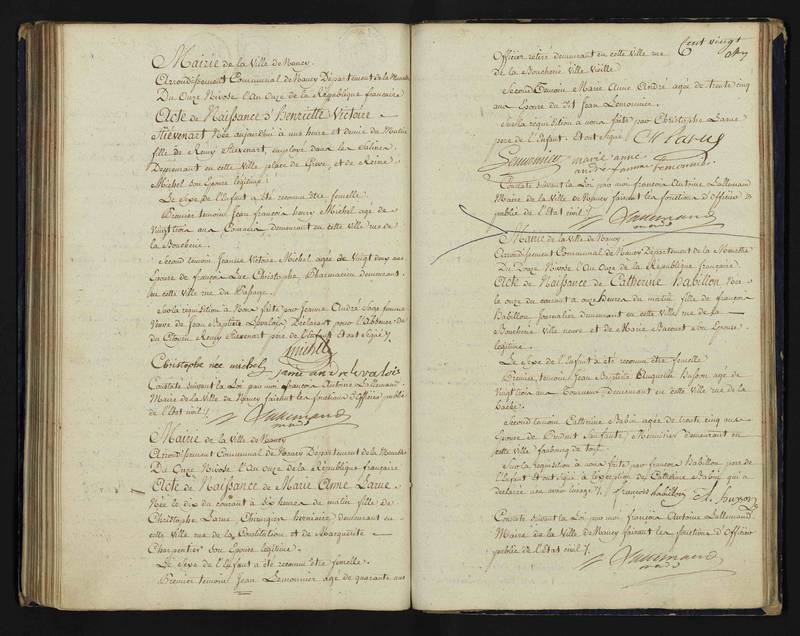 Mairie de la Ville de Nancy.
Arrondissement Communal de Nancy Département de la Meurthe
Du Onze Nivose l'An Onze de la République françaire
Acte de Naissance d'henriette Victoire
Stievenart Née aujourd'hui à une heure et demie du Matin
fille de Remy Stievenart, employé dans les Salines
Demeurant en cette Ville place de Grève, et de Reine
Michel son Epouse légitime.
Le Sexe de l'Enfant a été reconnu être femelle.
Premier temoin Jean françois henry Michel agé de
Vingt trois ans demeurant en cette ville rue de
la Boucherie.
Second temoin Jeanne Victoire Michel agée de Vingt deux ans
Epouse de françois Luc Christophe, Pharmacien demeurant
en cette ville rue du Passage.
Sur la réquisition à Nous faite par Jeanne André Sage femme
Veuve de Jean Baptiste Levalois Déclarant pour l'absence de
du Citoyen Remy Stievenart père de l'Enfant Et ont Signé
Michel
Christophe née michel jeanne andre levalois
Constaté suivant la Loi par moi françois Antoine Lallemand
Maire de la Ville de Nancy faisant les fonctions d'Officier public
de l'Etat civil
Lallemand
Mairie de la Ville de Nancy
Arrondissement Communal de Nancy Département de la Meurthe
Du Onze Nivose l'An Onze de la République françaire
Acte de Naissance de Marie Anne Larue
Née le dix du courant à dix heures du matin fille de
Christophe Larue Chirurgien herniaire demeurant en
cette Ville rue de la Constitution et de Marguerite
Charpentier son Epouse légitime.
Le Sexe de l'Enfant a été reconnu être femelle.
Premier temoin Jean Lemonnier agé de quarante ans
Cent vingt
Officier retiré demeurant en cette Ville rue
de la Boucherie Ville Vieille
Second Temoin Marie Anne André agée de trente cinq
ans Epouse du dit Jean Lemonnier.
Sur la réquisition à nous faite par Christophe Larue
père de l'Enfant. Et ont Signé Ch Larue
Lemonnier marie anne
andre femme lemonnier
Constaté suivant la Loi par moi françois Antoine Lallemand
Maire de la Ville de Nancy faisant les fonctions d'Officier
public de l'Etat civil
Lallemand
Mairie de la Ville de Nancy.
Arrondissement Communal de Nancy Département de la Meurthe
Du Douze Nivose l'An Onze de la République françaire.
Acte de Naissance de Catherine Babillon Née
le onze du courant à onze heures du matin fille de françois
Babillon Journalier demeurant en cette Ville rue de la
Boucherie Ville neuve et de Marie Bacourt son Epouse
légitime.
Le Sexe de l'Enfant a été reconnu être femelle
Premier temoin Jean Baptiste Husson agé de
vingt trois ans demeurant en cette Ville rue de la
hache.
Second temoin Catherine Babin agée de trente cinq ans
Epouse de Menuisier demeurant en
cette Ville faubourg de
Sur la réquisition à nous faite par françois Babillon père de
l'Enfant et ont signé à l'exception de Catherine Babin qui a
déclaré son usage françois babillon husson
Constaté suivant la Loi par moi françois Antoine Lallemand
Maire de la Ville de Nancy faisant les fonctions d'Officier
public de l'Etat civil
Lallemand